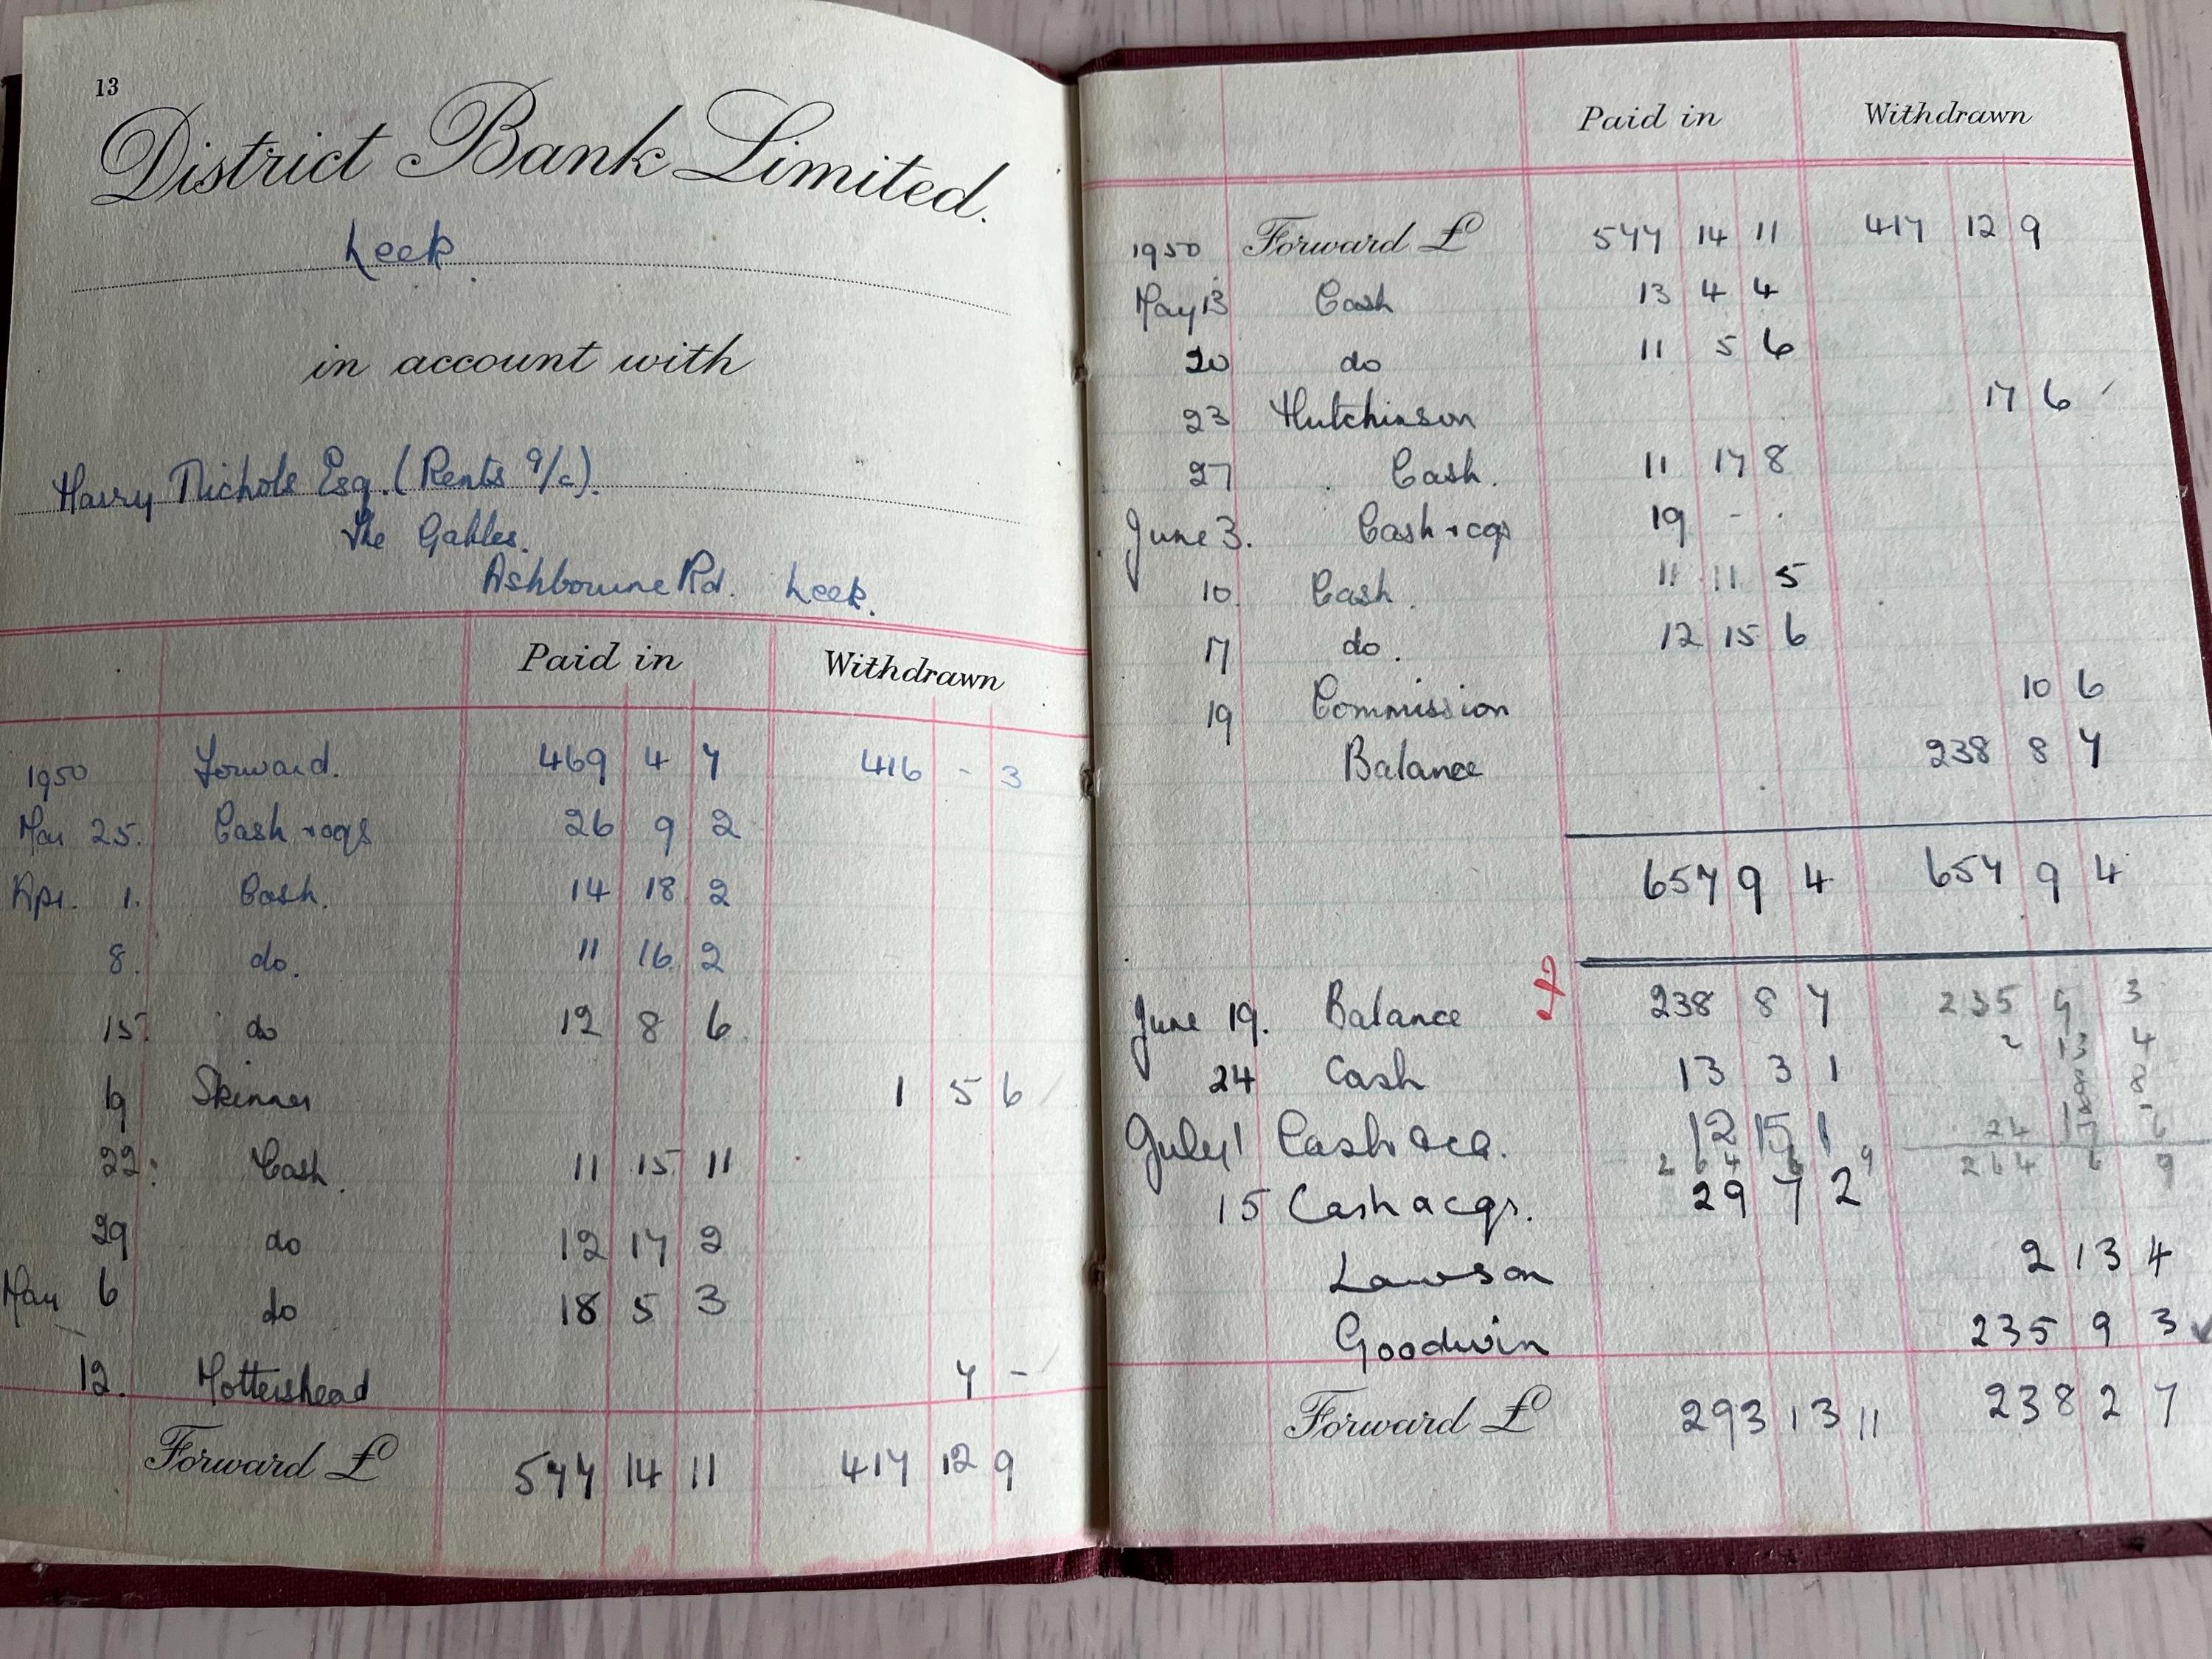 13
District Bank Limited.
Leek
in account with
Harry Nichols Esq. (Rents a/c).
The Gables.
Ashbourne Rd. Leek.
Paid in Withdrawn
1950 Forward. 469 4 7 416 - 3
Mar 25. Cash & cqs 26 9 2
Apr. 1. Cash. 14 18 2
8. do. 11 16 2
15. do 12 8 6
19 Skinner 1 5 6
22. Cash. 11 15 11
29 do 12 17 2
May 6 do 18 5 3
12. Mottershead 7 -
Forward £ 577 14 11 417 12 9
Paid in Withdrawn
1950 Forward £ 577 14 11 417 12 9
May 13 Cash 13 4 4
20 do 11 5 6
23 Hutchinson 17 6
27 Cash. 11 17 8
June 3. Cash & cqs 19 - -
10. Cash. 11 11 5
17 do. 12 15 6
19 Commission 10 6
Balance 238 8 7
657 9 4 657 9 4
June 19. Balance 238 8 7 235 9 3
24 Cash 13 3 1 2 13 4
July 1 Cash & cq. 12 15 1
264 6 9 264 6 9
15 Cash & cqs. 29 7 2
Lawson 2 13 4
Goodwin 235 9 3
Forward £ 293 13 11 238 2 7